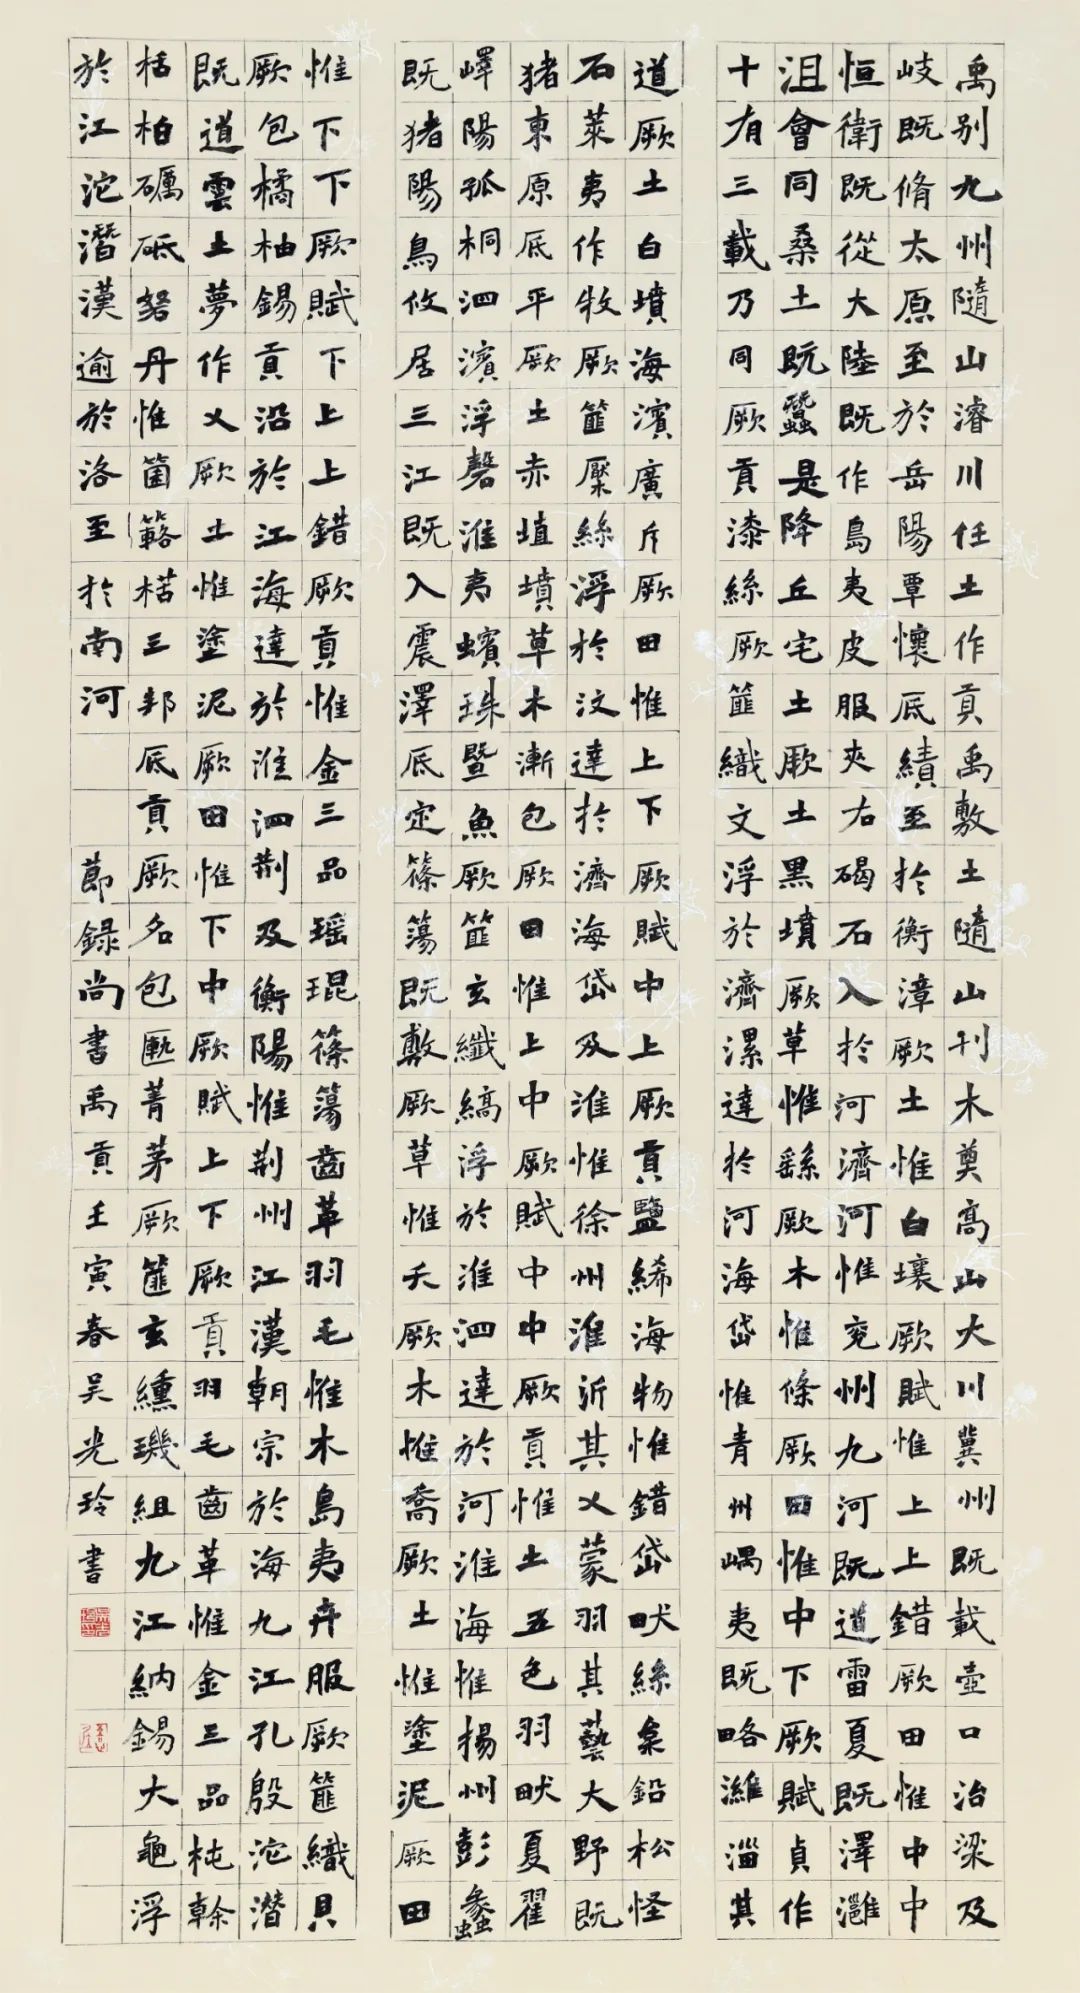 禹别九州隨山濬川任土作貢禹敷土隨山刊木奠高山大川冀州既載壺口治梁及
岐既脩太原至於岳陽覃懷厎績至於衡漳厥土惟白壤厥賦惟上上錯厥田惟中中
恒衛既從大陸既作島夷皮服夾右碣石入於河濟河惟兖州九河既道雷夏既澤灉
沮會同桑土既蠶是降丘宅土厥土黑墳厥草惟繇厥木惟條厥田惟中下厥賦貞作
十有三載乃同厥貢漆絲厥篚織文浮於濟漯達於河海岱惟青州嵎夷既略濰淄其
道厥土白墳海濱廣斥厥田惟上下厥賦中上厥貢鹽絺海物惟錯岱畎絲枲鉛松怪
石萊夷作牧厥篚檿絲浮於汶達於濟海岱及淮惟徐州淮沂其乂蒙羽其藝大野既
猪東原厎平厥土赤埴墳草木漸包厥田惟上中厥賦中中厥貢惟土五色羽畎夏翟
嶧陽孤桐泗濱浮磬淮夷蠙珠暨魚厥篚玄纖縞浮於淮泗達於河淮海惟揚州彭蠡
既猪陽鳥攸居三江既入震澤厎定篠簜既敷厥草惟夭厥木惟喬厥土惟塗泥厥田
惟下下厥賦下上上錯厥貢惟金三品瑶琨篠簜齒革羽毛惟木島夷卉服厥篚織貝
厥包橘柚錫貢沿於江海達於淮泗荆及衡陽惟荆州江漢朝宗於海九江孔殷沱潛
既道雲土夢作乂厥土惟塗泥厥田惟下中厥賦上下厥貢羽毛齒革惟金三品杶榦
栝柏礪砥砮丹惟箘簵楛三邦厎貢厥名包匭菁茅厥篚玄纁璣組九江納錫大龜浮
於江沱潛漢逾於洛至於南河 節録尚書禹貢壬寅春吴光玲書